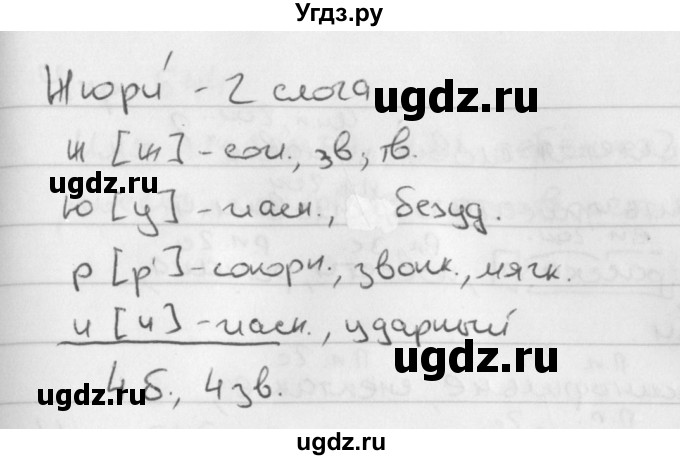 Угдз.ру
Жюри́ - 2 слога
ugdz.ru
ж [ж] - сог., зв., тв.
ugdz.ru
ю [у] - гласн., безуд.
ugdz.ru
р [р'] - согл., звонк., мягк.
и [и] - гласн., ударный
ugdz.ru
4 б., 4 зв.
ugdz.ru
ugdz.ru